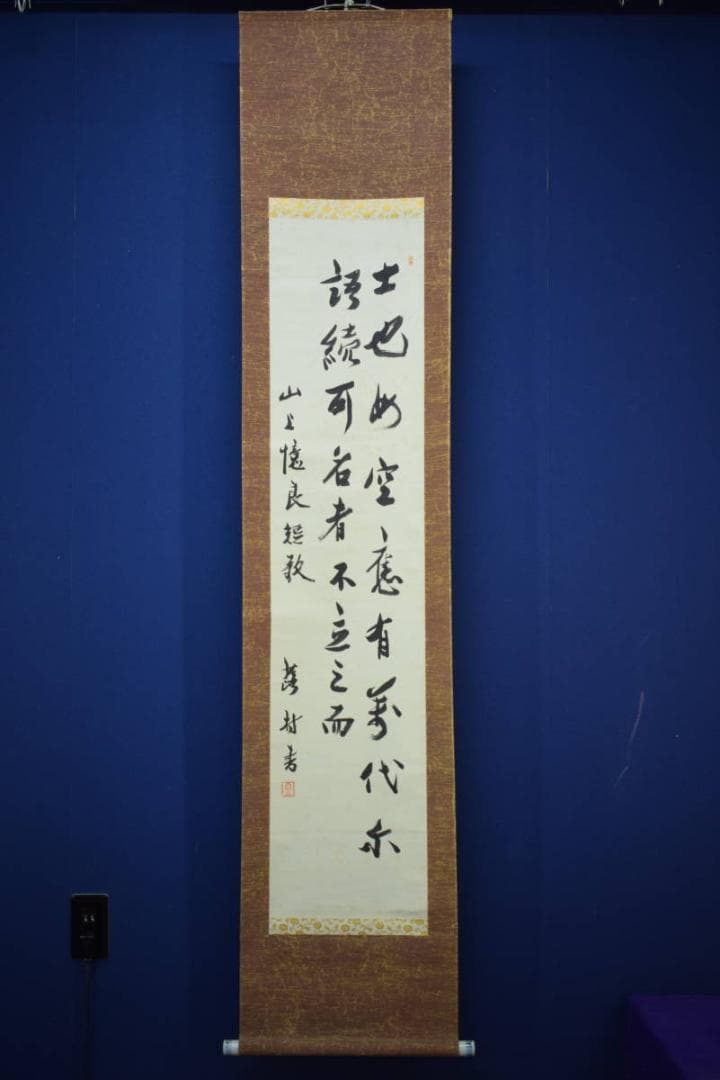 士也母空應有萬代尓
語續可名者不立之而
山上憶良短歌
村書